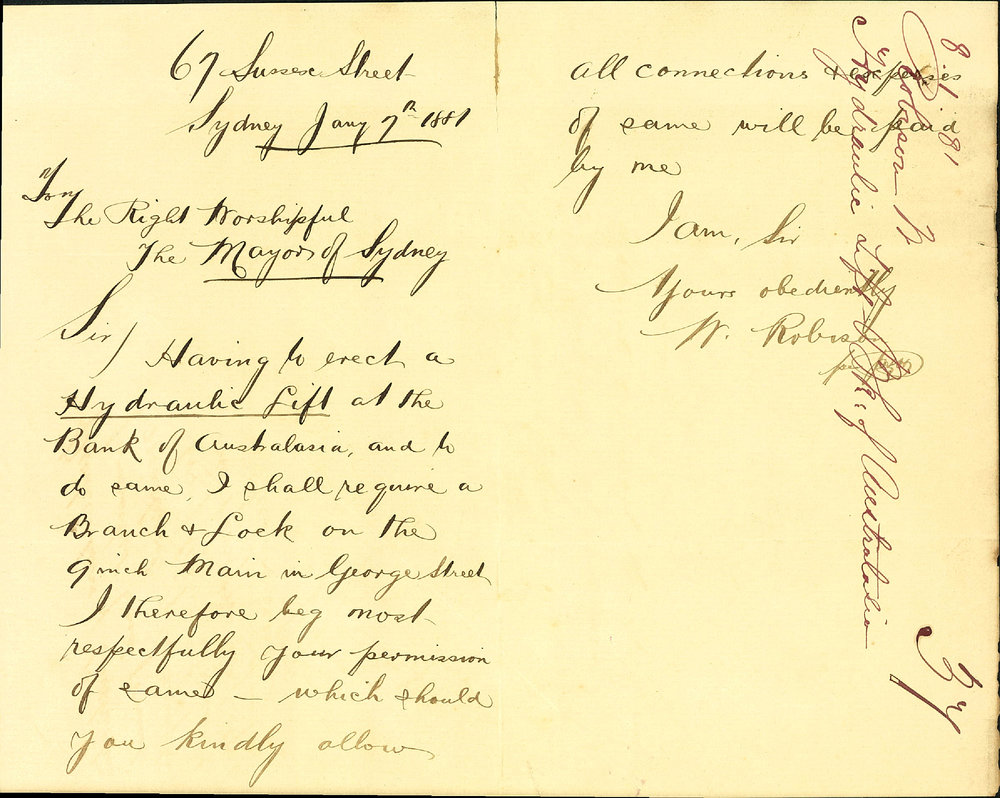 67 Sussex Street
Sydney Jany 7th 1881
To
The Right Worshipful
The Mayor of Sydney
Sir/
Having to erect a
Hydraulic Lift at the
Bank of Australasia, and to
do same, I shall require a
Branch & Lock on the
9 inch Main in George Street
I therefore beg most
respectfully your permission
of same – which should
you kindly allow
all connections & expenses
of same will be paid
by me
I am, Sir
Yours obediently
W. Robison
per
8.1.81
Robison W
Hydraulic Lift
Bk: of Australasia